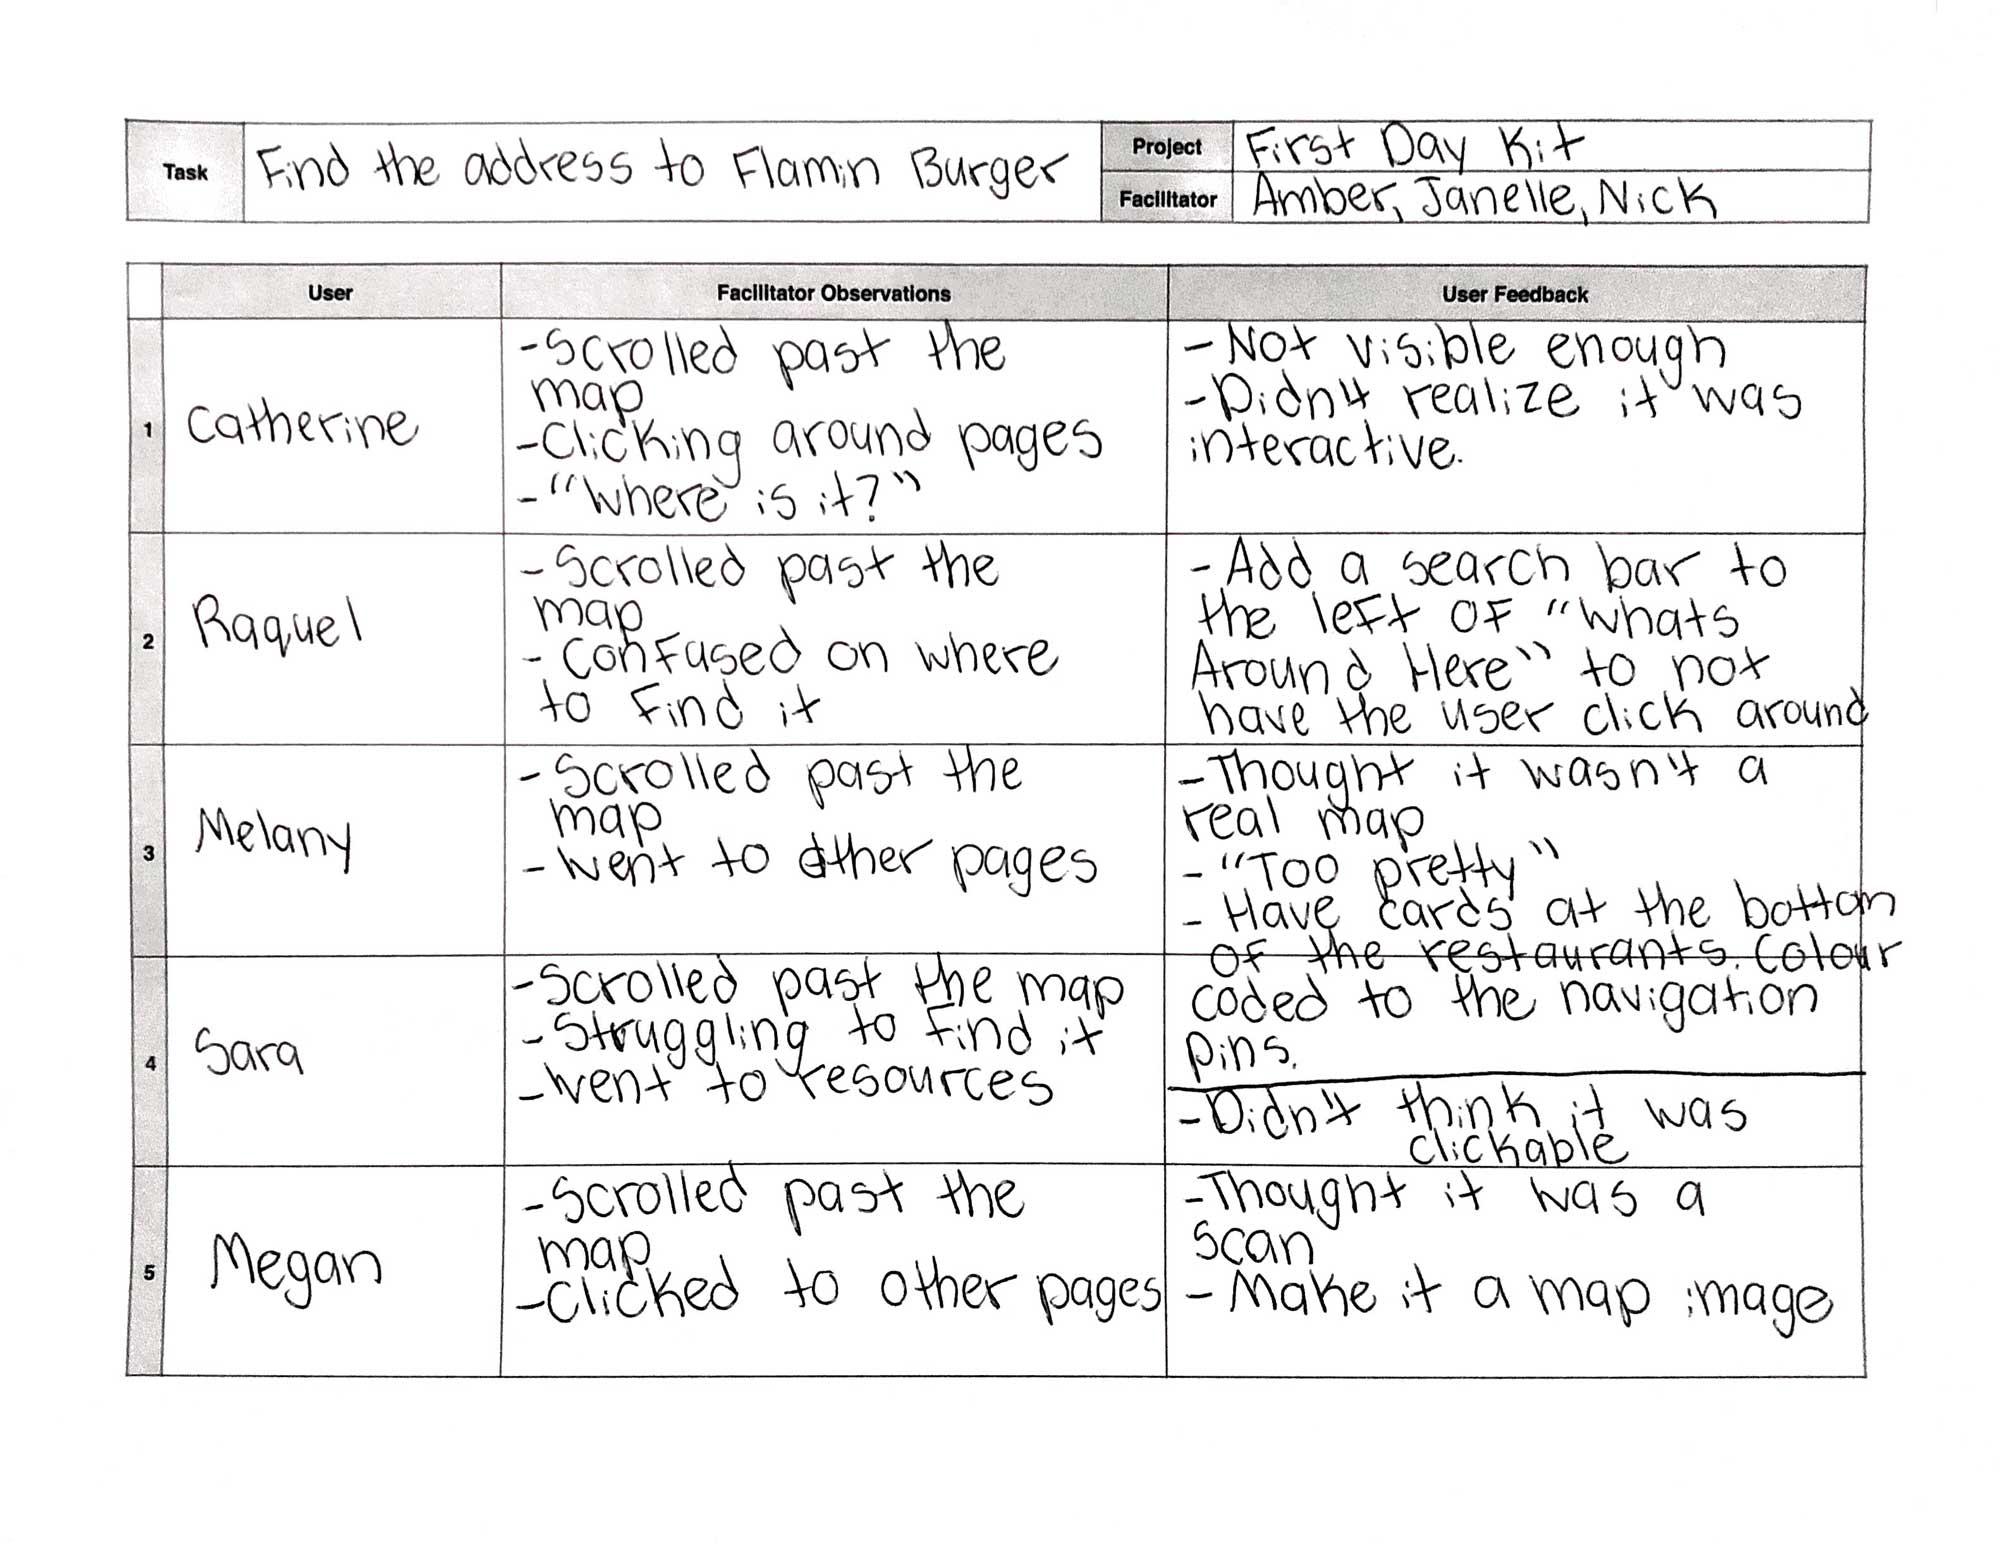 Task
Find the address to Flamin Burger
Project
First Day Kit
Facilitator
Amber, Janelle, Nick
User
Facilitator Observations
User Feedback
1
Catherine
-Scrolled past the
map
-Clicking around pages
-"Where is it?"
- Not visible enough
-Didn't realize it was
interactive.
2
Raquel
-Scrolled past the
map
- Confused on where
to find it
- Add a search bar to
the left of "Whats
Around Here" to not
have the user click around
3
Melany
-Scrolled past the
map
-Went to other pages
-Thought it wasn't a
real map
-"Too pretty"
- Have cards at the bottom
of the restaurants. Colour
coded to the navigation
pins.
4
Sara
-Scrolled past the map
-Struggling to find it
-Went to resources
-Didn't think it was
clickable
5
Megan
-Scrolled past the
map
-Clicked to other pages
-Thought it was a
scan
- Make it a map image